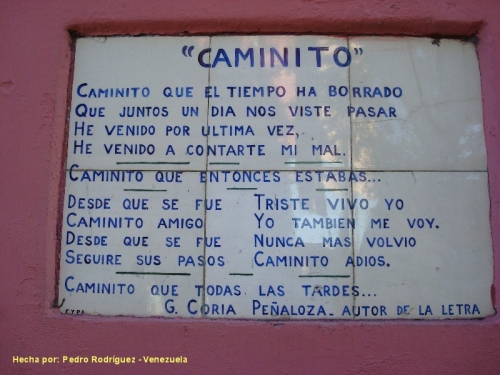 "CAMINITO"
CAMINITO QUE EL TIEMPO HA BORRADO
QUE JUNTOS UN DIA NOS VISTE PASAR
HE VENIDO POR ULTIMA VEZ,
HE VENIDO A CONTARTE MI MAL.
CAMINITO QUE ENTONCES ESTABAS...
DESDE QUE SE FUE TRISTE VIVO YO
CAMINITO AMIGO YO TAMBIEN ME VOY.
DESDE QUE SE FUE NUNCA MAS VOLVIO
SEGUIRE SUS PASOS CAMINITO ADIOS.
CAMINITO QUE TODAS LAS TARDES...
G. CORIA PEÑALOZA. AUTOR DE LA LETRA
Hecha por: Pedro Rodríguez - Venezuela